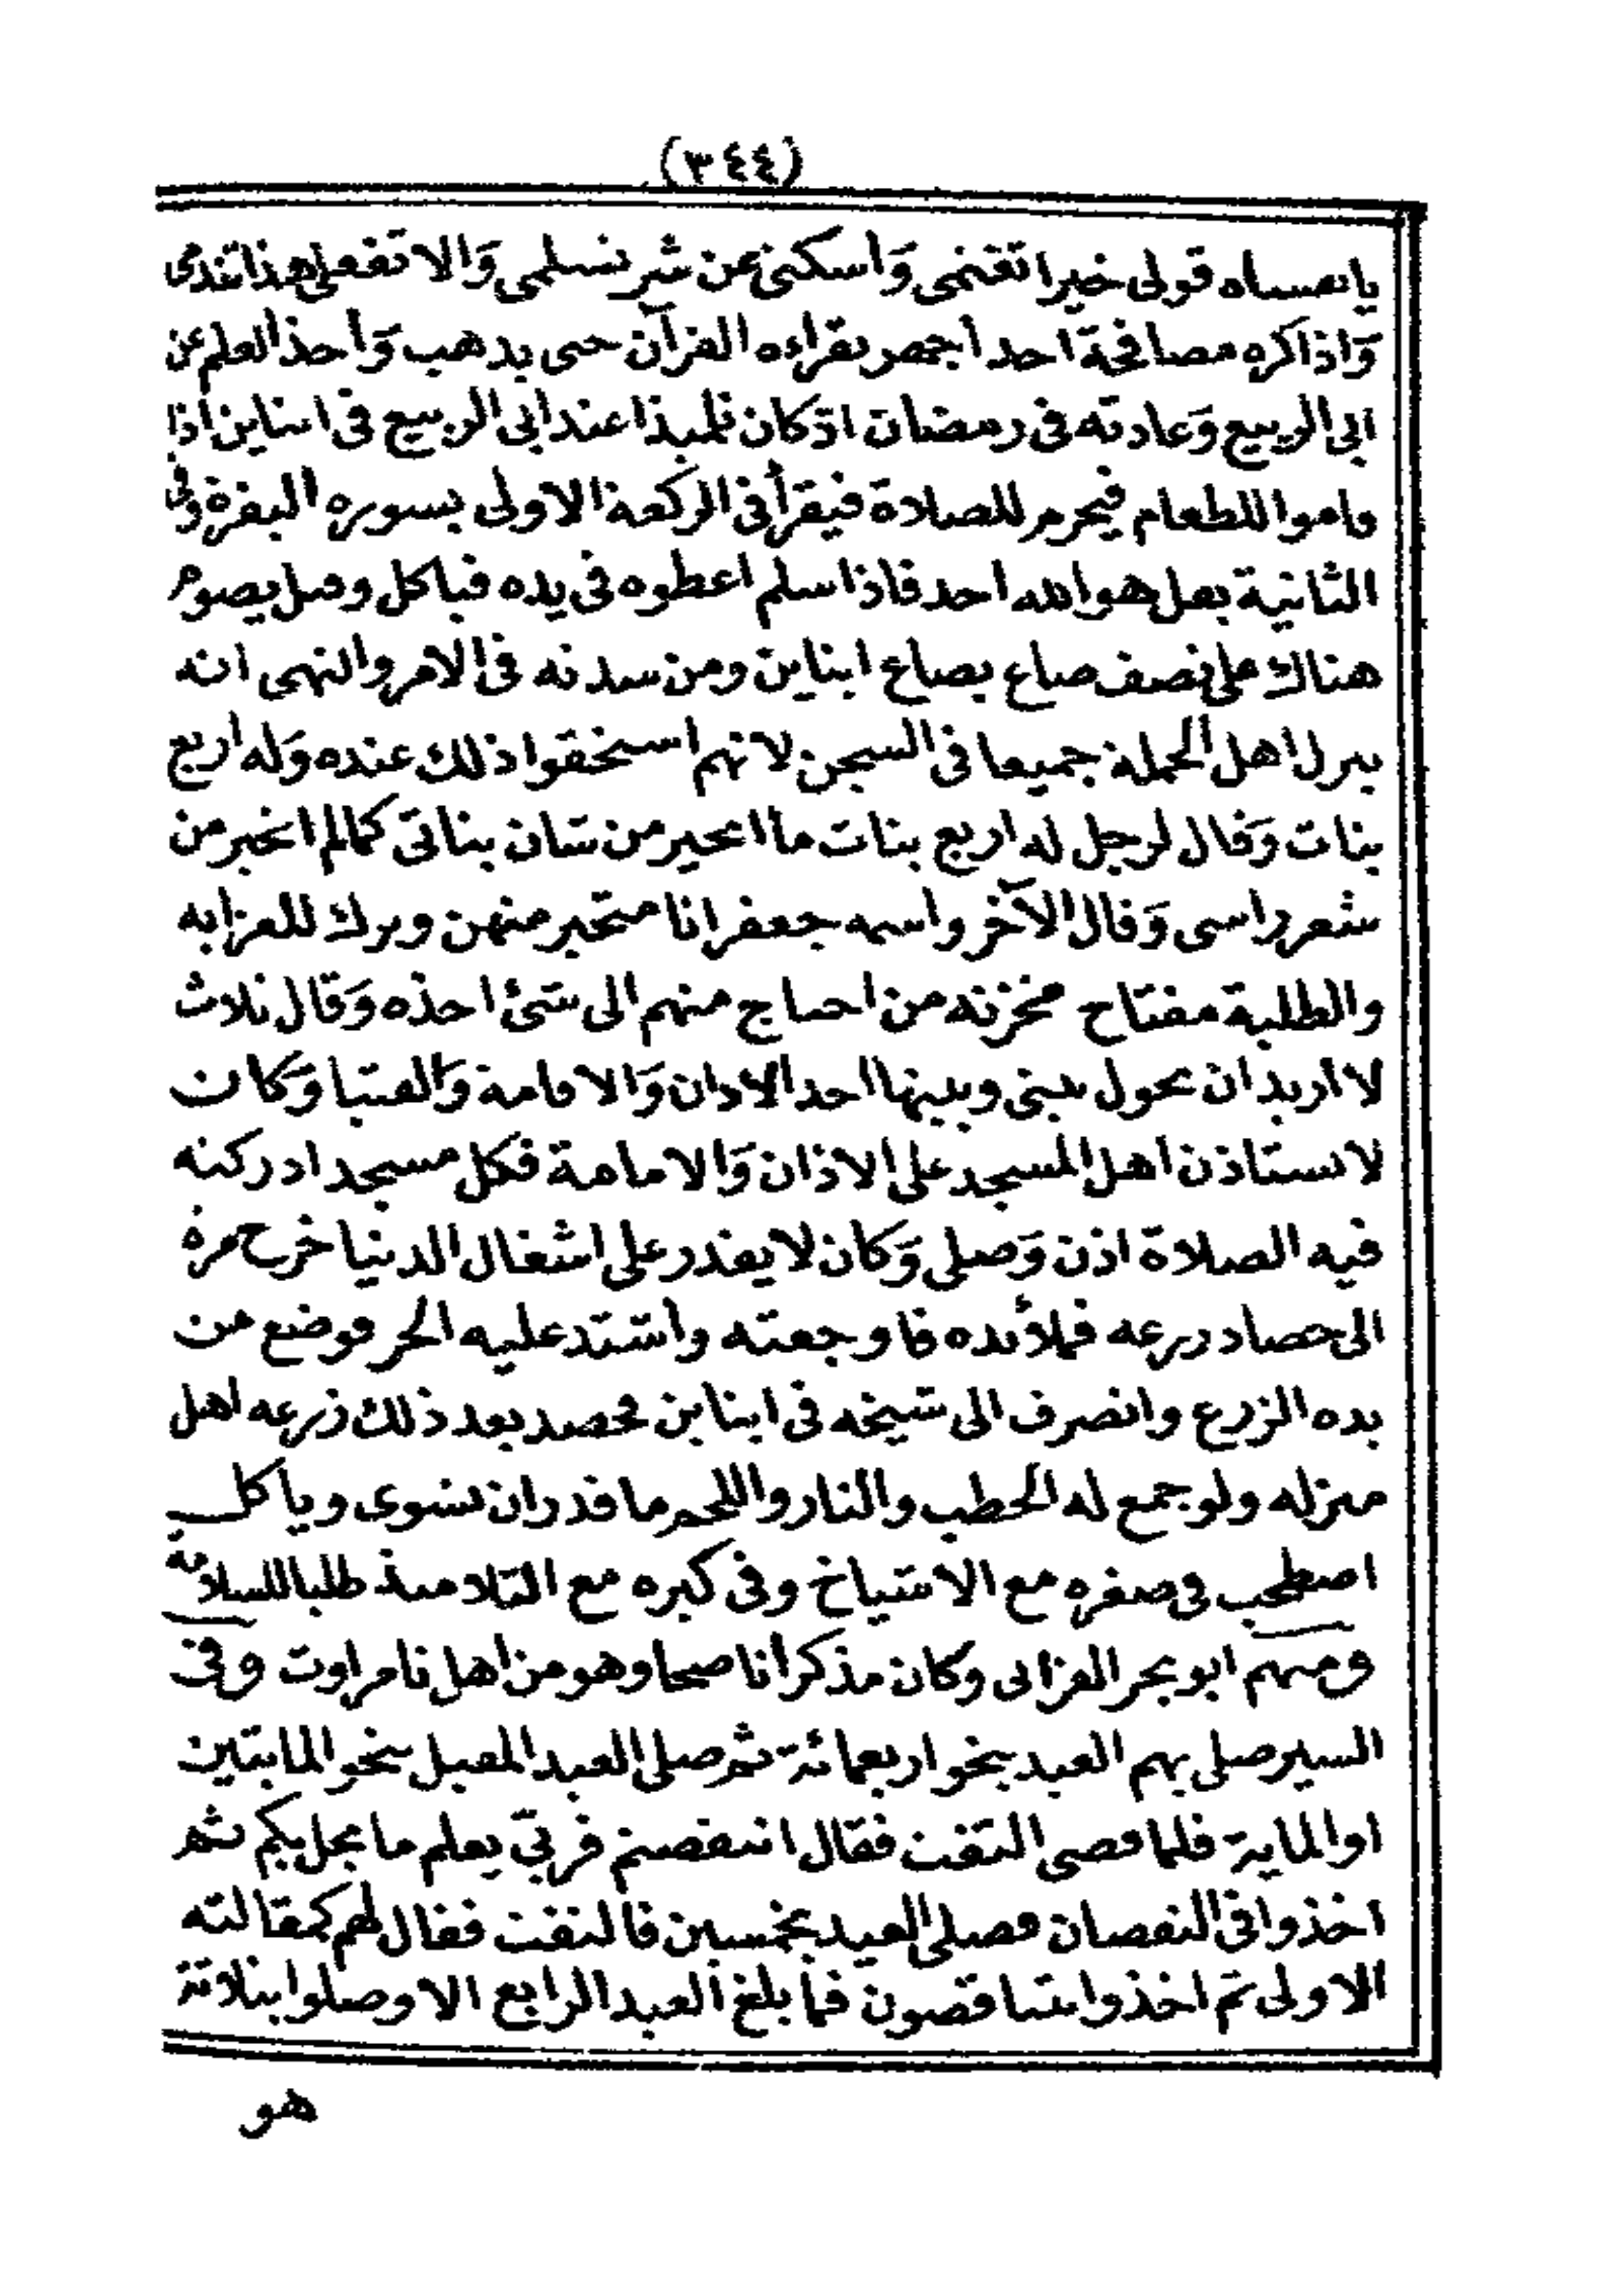 (٣٤٤)
يا نفساه قولى خيرا تغنمى وَاسكتى عن شر تسلمى وَالا تفعلى هذا تندمى
وَاذا كره مصافحة احد اجهر بقراءه القرآن حتى يذهب وَاخذ العلم عن
ابى الربيع وَعادته فى رمضان اذ كان تلميذا عند ابى الربيع فى ابناين اذا
قاموا للطعام فيحرم للصلاة فيقرأ فى الركعة الاولى بسوره البقرة وفى
الثانية بقل هو الله احد فاذا سلم اعطوه فى يده فياكل وقيل يصوم
هناك على نصف صاع بصاع ابناين ومن شدته فى الامر والنهى انه
ينزل اهل الحملة جميعا فى السجن لانهم استحقوا ذلك عنده وَله اربع
بنات وَقال لرجل له اربع بنات ما اتحير من شان بناتى كما لم اتحير من
شعر راسى وَقال الآخر واسمه جعفر انا متحير منهن وترك للعزابه
والطلبة مفتاح مخزنه من احتاج منهم الى شئ اخذه وَقال ثلاث
لا اريد ان يحول بينى وبينها احد الاذان وَالاقامة وَالفتيا وَكان
لا يستاذن اهل المسجد على الاذان وَالامامة فكل مسجد ادركته
فيه الصلاة اذن وَصلى وَكان لا يقدر على اشغال الدنيا خرج مرة
الى حصاد زرعه فملأ يده فاوجعته واشتد عليه الحر فوضع من
يده الزرع وانصرف الى شيخه فى ابناين فحصد بعد ذلك زرعه اهل
منزله ولو جمع له الحطب والنار واللحم ما قدر ان يشوى وياكل
اصطحب فى صغره مع الاشياخ وفى كبره مع التلاميذ طلبا للسلامة
ومنهم ابو بحر الفزانى وكان مذكرا ناصحا وهو من اهل تامراوت وفى
السير صلى بهم العيد بنحو اربعمائة ثم صلى العيد المقبل بنحو المايتين
او الماية فلما قضى التفت فقال انتقصتم فربى يعلم ما يحل بكم ثم
اخذوا فى النقصان فصلى العيد بخمسين فالتفت فقال لهم كمقالته
الاولى ثم اخذوا يتناقصون فما بلغ العيد الرابع الا وصلوا بثلاثة
هو